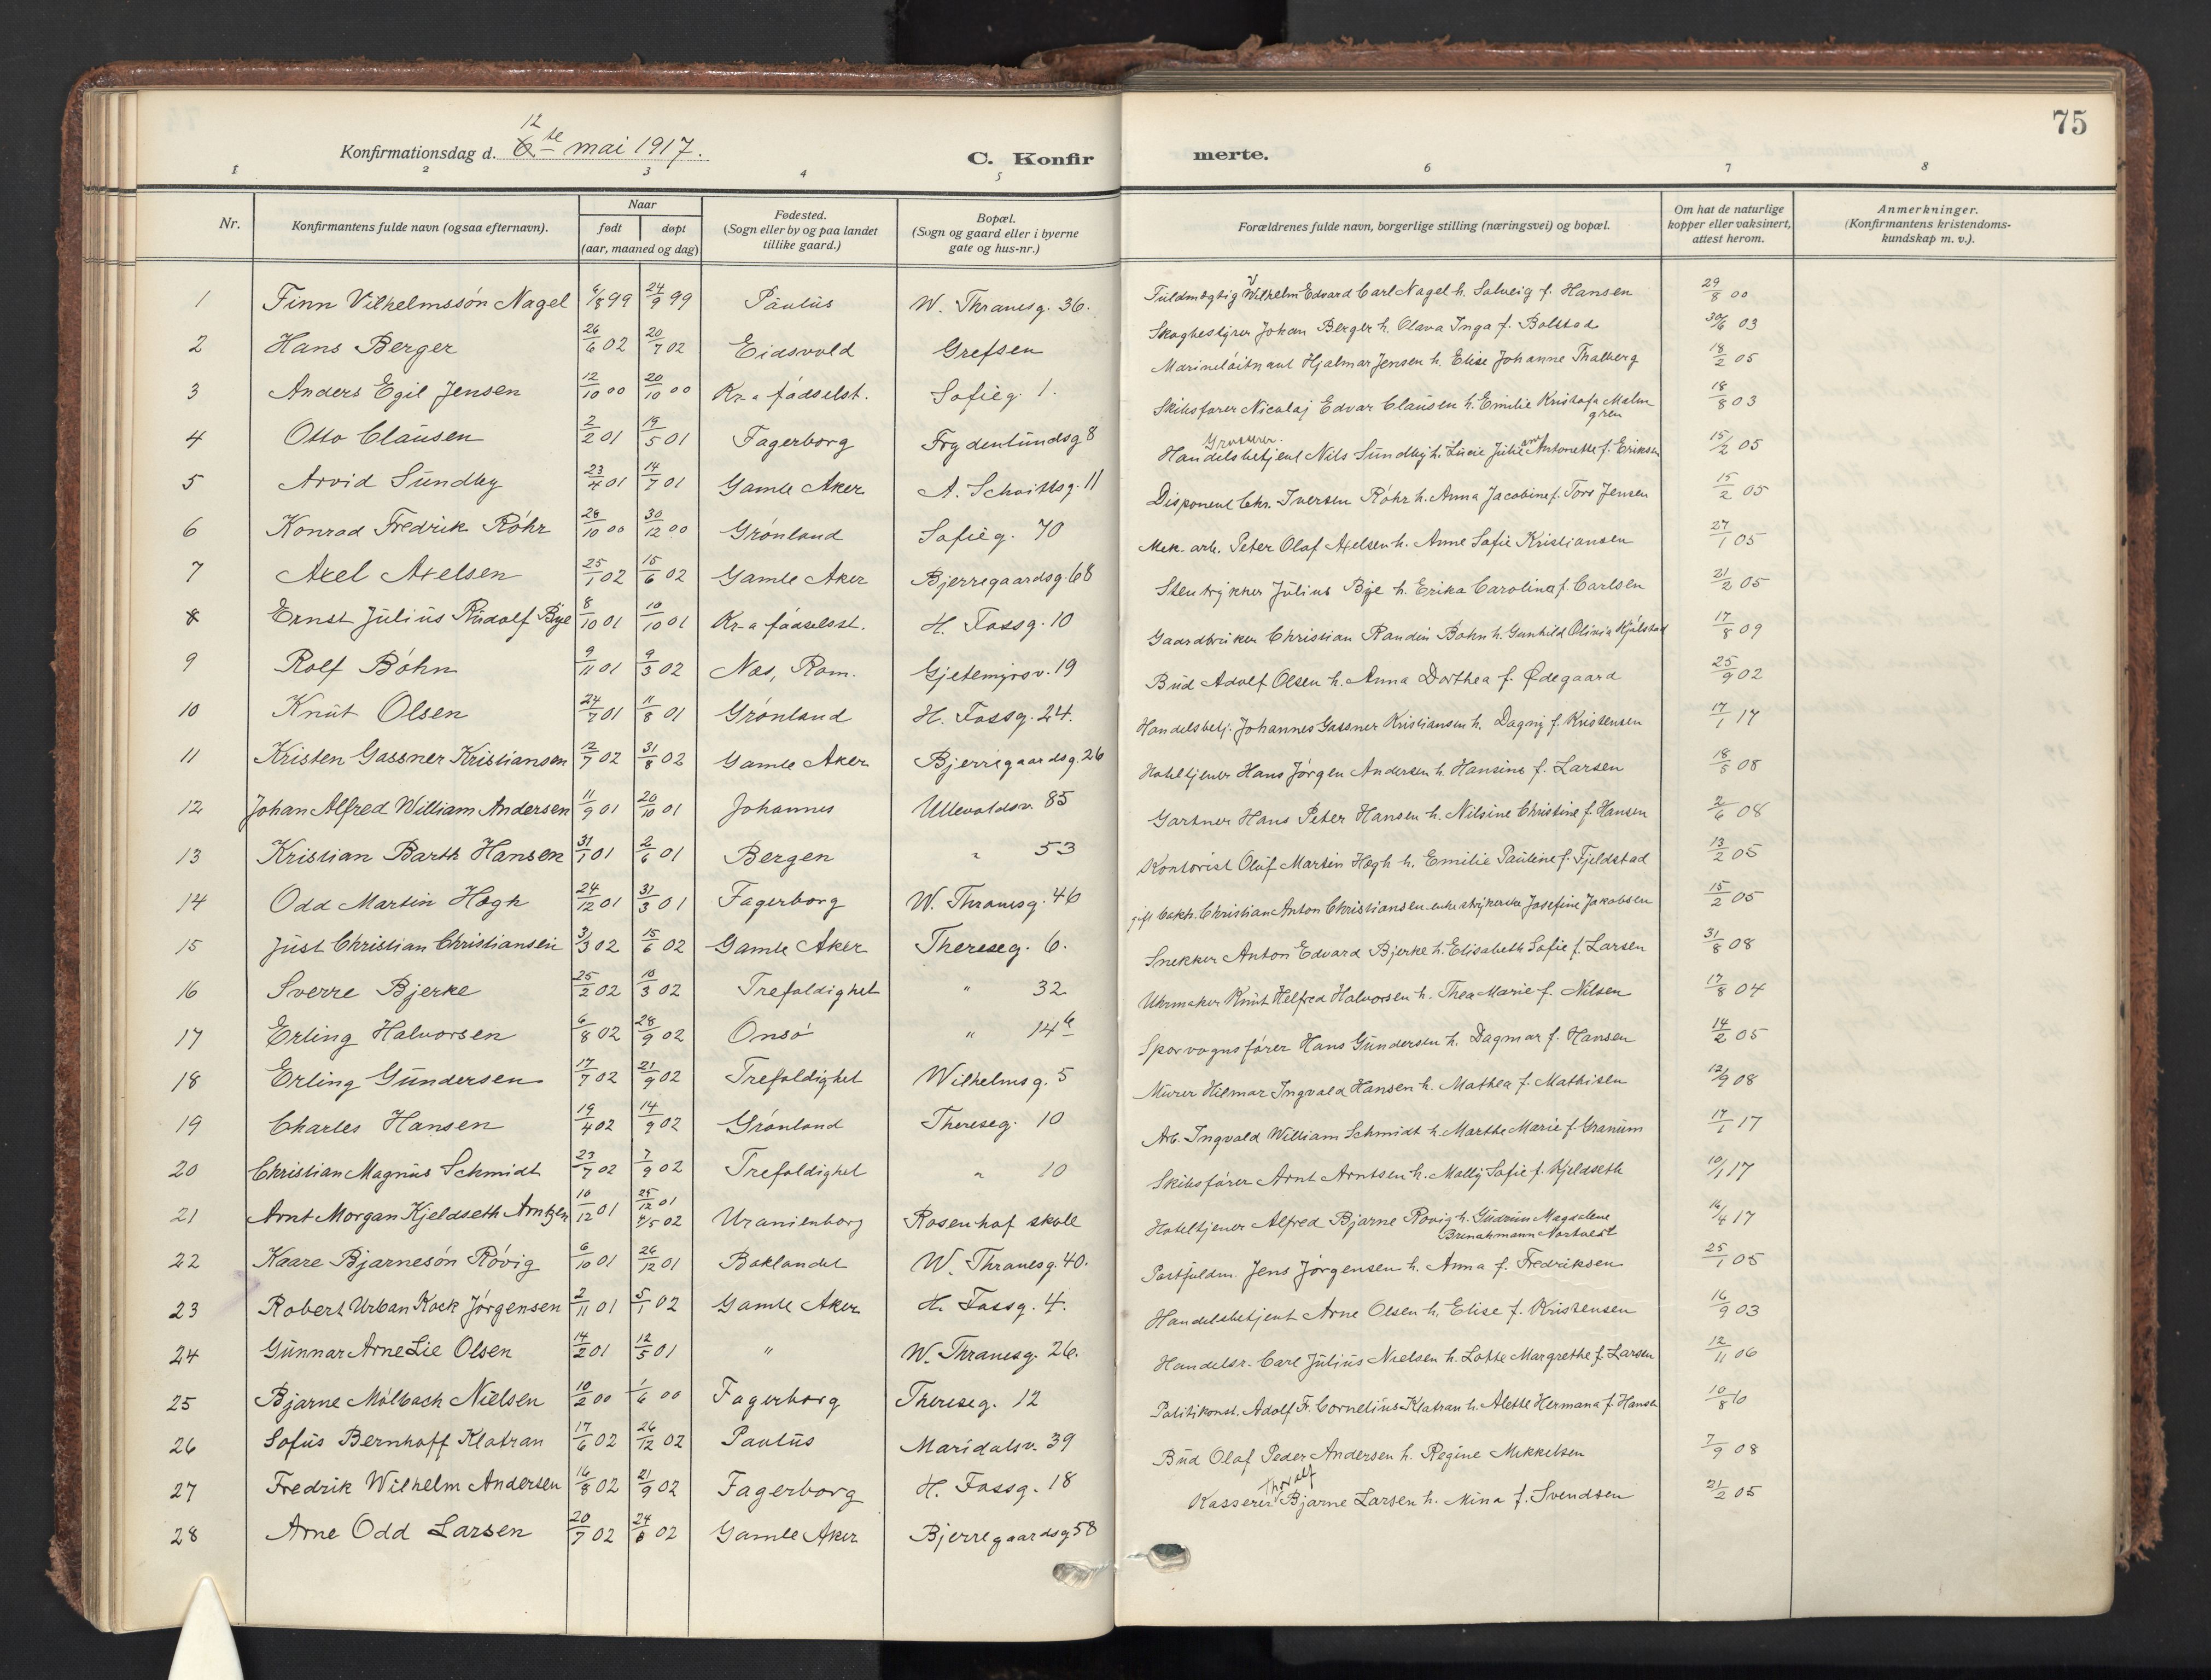 75
Konfirmationsdag d. 12 te mai 1917.
C. Konfirmerte.
1 2 3 4 5 6 7 8
Nr. Konfirmantens fulde navn (ogsaa efternavn). Naar født døpt (aar, maaned og dag) Fødested. (Sogn eller by og paa landet tillike gaard.) Bopæl. (Sogn og gaard eller i byerne gate og hus-nr.) Forældrenes fulde navn, borgerlige stilling (næringsvei) og bopæl. Om hat de naturlige kopper eller vaksinert, attest herom. Anmerkninger. (Konfirmantens kristendoms-kundskap m. v.).
1 Finn Vilhelmssón Nagel 6/8 99 24/9 99 Paulus W. Thranesg. 36. Fuldmægtig Vilhelm Edvard Carl Nagel h. Solveig f. Hansen 29/8 00
2 Hans Berger 26/6 02 20/7 02 Eidsvold Grefsen Skogbestyrer Johan Berger h. Olava Inga f. Bolstad 30/6 03
3 Anders Egil Jensen 12/10 00 20/10 00 Kr-a fødselsst. Sofieg. 1. Marineløitnant Hjalmar Jensen h. Elise Johanne Thalberg 18/2 05
4 Otto Clausen 2/2 01 19/5 01 Fagerborg Frydenlundsg 8 Skibsfører Nicolaj Edvar Clausen h. Emilie Kristofa Malmgren 18/8 03
5 Arvid Sundby 23/4 01 14/7 01 Gamle Aker A. Schvittsg. 11 Grosserer Handelsbetjent Nils Sundby h. Lucie Julie Antonette f. Eriksen 15/2 05
6 Konrad Fredrik Röhr 28/10 00 30/12 00 Grønland Sofieg. 70 Disponent Chr. Iversen Röhr h. Anna Jacobine f. Tors Jensen 15/2 05
7 Axel Axelsen 25/1 02 15/6 02 Gamle Aker Bjerregaardsg. 68 Mek. arb. Peter Olaf Axelsen h. Anne Sofie Kristiansen 27/1 05
8 Ernst Julius Rudolf Bye 8/10 01 10/10 01 Kr-a fødselsst. H. Fossg. 10 Stentrykker Julius Bye h. Erika Caroline f. Carlsen 21/2 05
9 Rolf Böhn 9/11 01 9/3 02 Næs, Rom. Gjetemyrsv. 19 Gaardbruker Christian Randin Bøhn h. Gunhild Olivia Kjølstad 17/8 09
10 Knut Olsen 24/7 01 11/8 01 Grønland H. Fossg. 24. Bud Adolf Olsen h. Anna Dorthea f. Ødegaard 25/9 02
11 Kristen Gassner Kristiansen 12/7 02 31/8 02 Gamle Aker Bjerregaardsg. 26 Handelsbetj. Johannes Gassner Kristiansen h. Dagny f. Kristensen 17/1 17
12 Johan Alfred William Andersen 11/9 01 20/10 01 Johannes Ullevoldsv. 85 Hoteltjener Hans Jørgen Andersen h. Hansine f. Larsen 18/5 08
13 Kristian Barth Hansen 31/1 01 2/6 01 Bergen " 53 Gartner Hans Peter Hansen h. Nilsine Christine f. Hansen 2/6 08
14 Odd Martin Høgh 24/12 01 31/3 01 Fagerborg W. Thranesg. 46 Kontorist Oluf Martin Høgh h. Emilie Pauline f. Fjeldstad 13/2 05
15 Just Christian Christiansen 31/3 02 15/6 02 Gamle Aker Thereseg. 6. Christian Anton Christiansen enke strykerske Josefine Jakobsen 15/2 05
16 Sverre Bjerke 25/2 02 10/3 02 Trefoldighet " 32 Snekker Anton Edvard Bjerke h. Elisabeth Sofie f. Larsen 31/8 08
17 Erling Halvorsen 6/8 02 28/9 02 Onsø " 14 b Uhrmaker Knut Helfred Halvorsen h. Thea Marie f. Nilsen 17/8 04
18 Erling Gundersen 17/7 02 21/9 02 Trefoldighet Wilhelmsg. 5 Sporvognsfører Hans Gundersen h. Dagmar f. Hansen 14/2 05
19 Charles Hansen 19/4 02 14/9 02 Grønland Thereseg. 10 Murer Hilmar Ingvald Hansen h. Mathea f. Mathisen 12/9 08
20 Christian Magnus Schmidt 23/7 02 7/9 02 Trefoldighet " 10 Arb. Ingvald William Schmidt h. Marthe Marie f. Granum 17/1 17
21 Arnt Morgan Kjeldseth Arntzen 10/12 01 25/12 01 4/5 02 Uranienborg Rosenhof skole Skibsfører Arnt Arntsen h. Mally Sofie f. Kjeldseth 10/1 17
22 Kaare Bjarnesón Rövig 6/10 01 26/12 01 Baklandet W. Thranesg. 40. Hoteltjener Alfred Bjarne Rovig h. Gudrun Magdalene Brunchmann Nortvedt 16/4 17
23 Robert Urban Kock Jørgensen 2/11 01 5/1 02 Gamle Aker H. Fossg. 4. Postfuldm. Jens Jørgensen h. Anna f. Fredriksen 25/1 05
24 Gunnar Arne Lie Olsen 14/2 01 12/5 01 " W. Thranesg. 26. Handelsbetjent Arne Olsen h. Elise f. Kristensen 16/9 03
25 Bjarne Mölbach Nielsen 10/2 00 1/6 00 Fagerborg Thereseg. 12 Handelsr. Carl Julius Nielsen h. Lotte Margrethe f. Larsen 12/11 06
26 Sofus Bernhoff Klatran 17/6 02 26/12 02 Paulus Maridalsv. 39 Politikonst. Adolf Fr. Cornelius Klatran h. Alette Hermana f. Hansen 10/8 10
27 Fredrik Wilhelm Andersen 16/8 02 21/9 02 Fagerborg H. Fossg. 18 Bud Olaf Peder Andersen h. Regine Mikkelsen 7/9 08
28 Arne Odd Larsen 20/7 02 24/8 02 Gamle Aker Bjerregaardsg 58 Kasserer Thoralf Bjarne Larsen h. Mina f. Svendsen 21/2 05